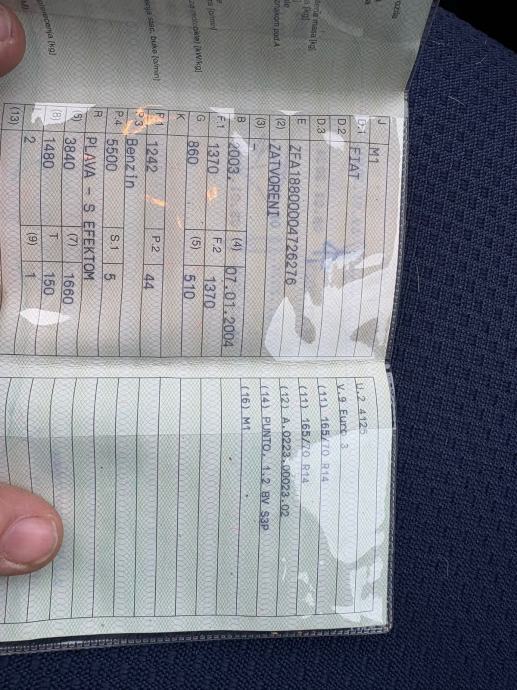 J M1
D.1 FIAT
D.2
D.3
E ZFA18800004726276
(2) ZATVORENI
(3) -
B 2003. (4) 07.01.2004
F.1 1370 F.2 1370
G 860 (5) 510
K
P.1 1242 P.2 44
P.3 Benzin
P.4 5500 S.1 5
R PLAVA - S EFEKTOM
(6) 3840 (7) 1660
(8) 1480 T 150
2 (9) 1
(13)
U.2 4125
V.9 Euro 3
(11) 165/70 R14
(11) 165/70 R14
(12) A.0223.00023.02
(14) PUNTO, 1.2 BV S3P
(16) M1